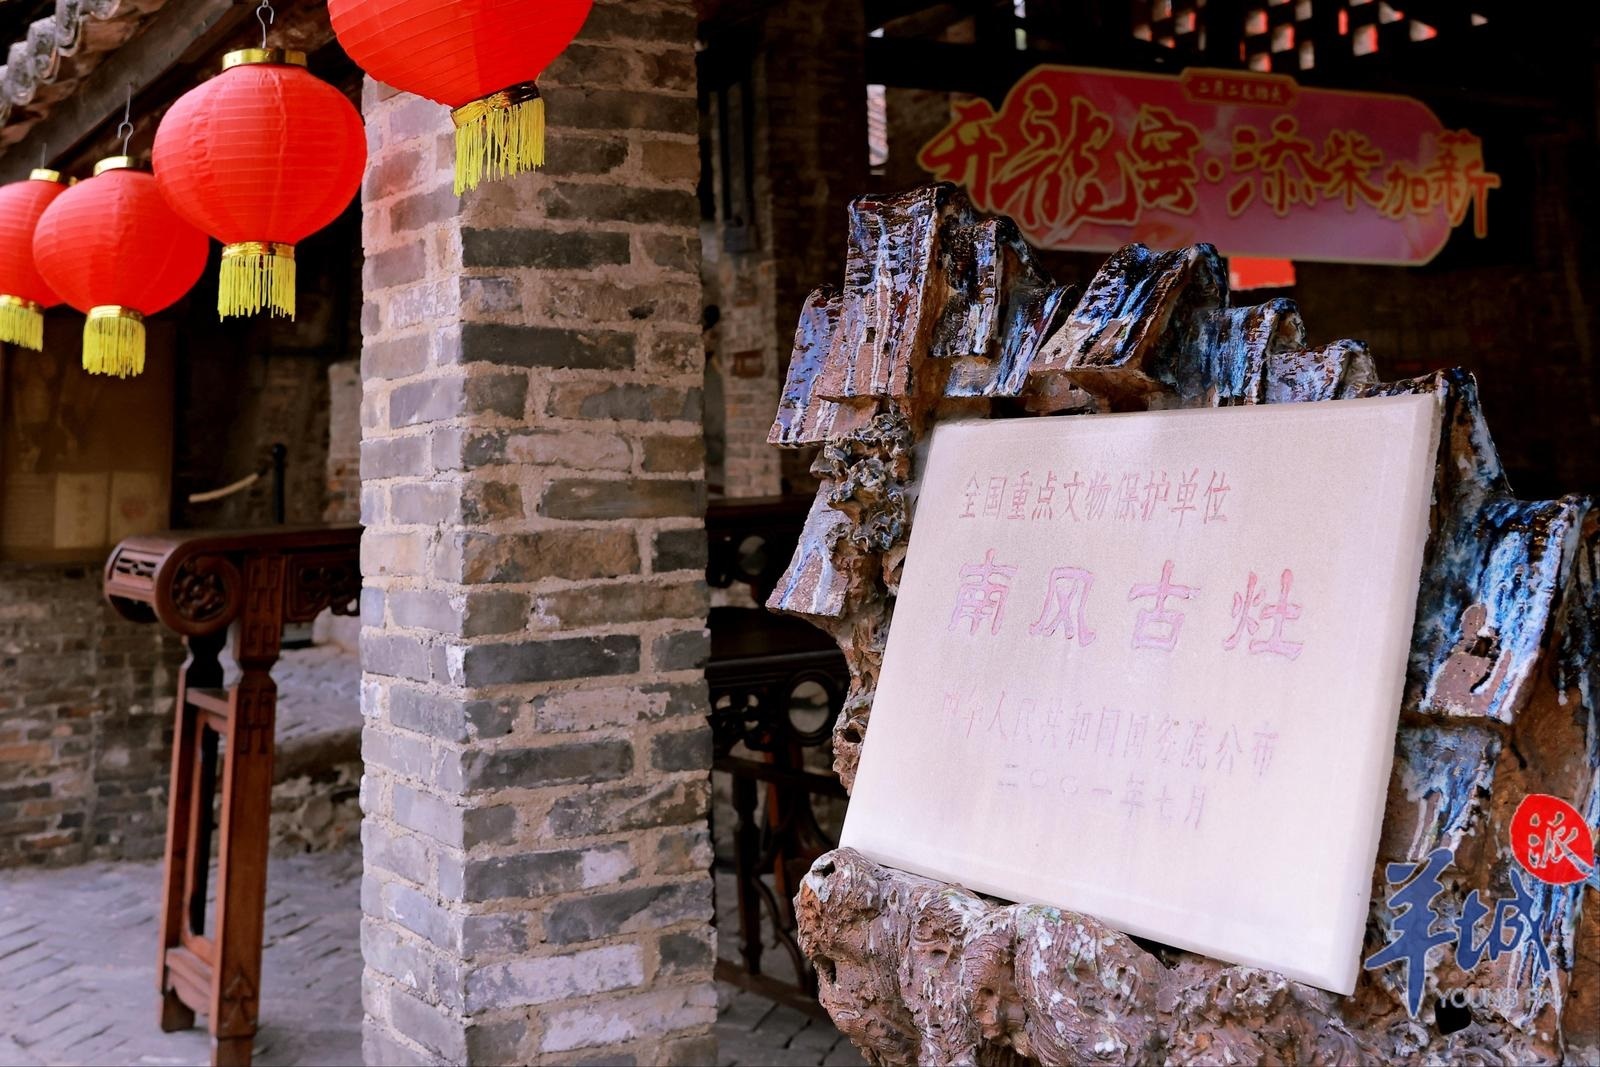 二月二龙抬头
开龍窑·添柴加薪
全国重点文物保护单位
南风古灶
中华人民共和国国务院公布
二〇〇一年七月
派
羊城
YOUNG PAI